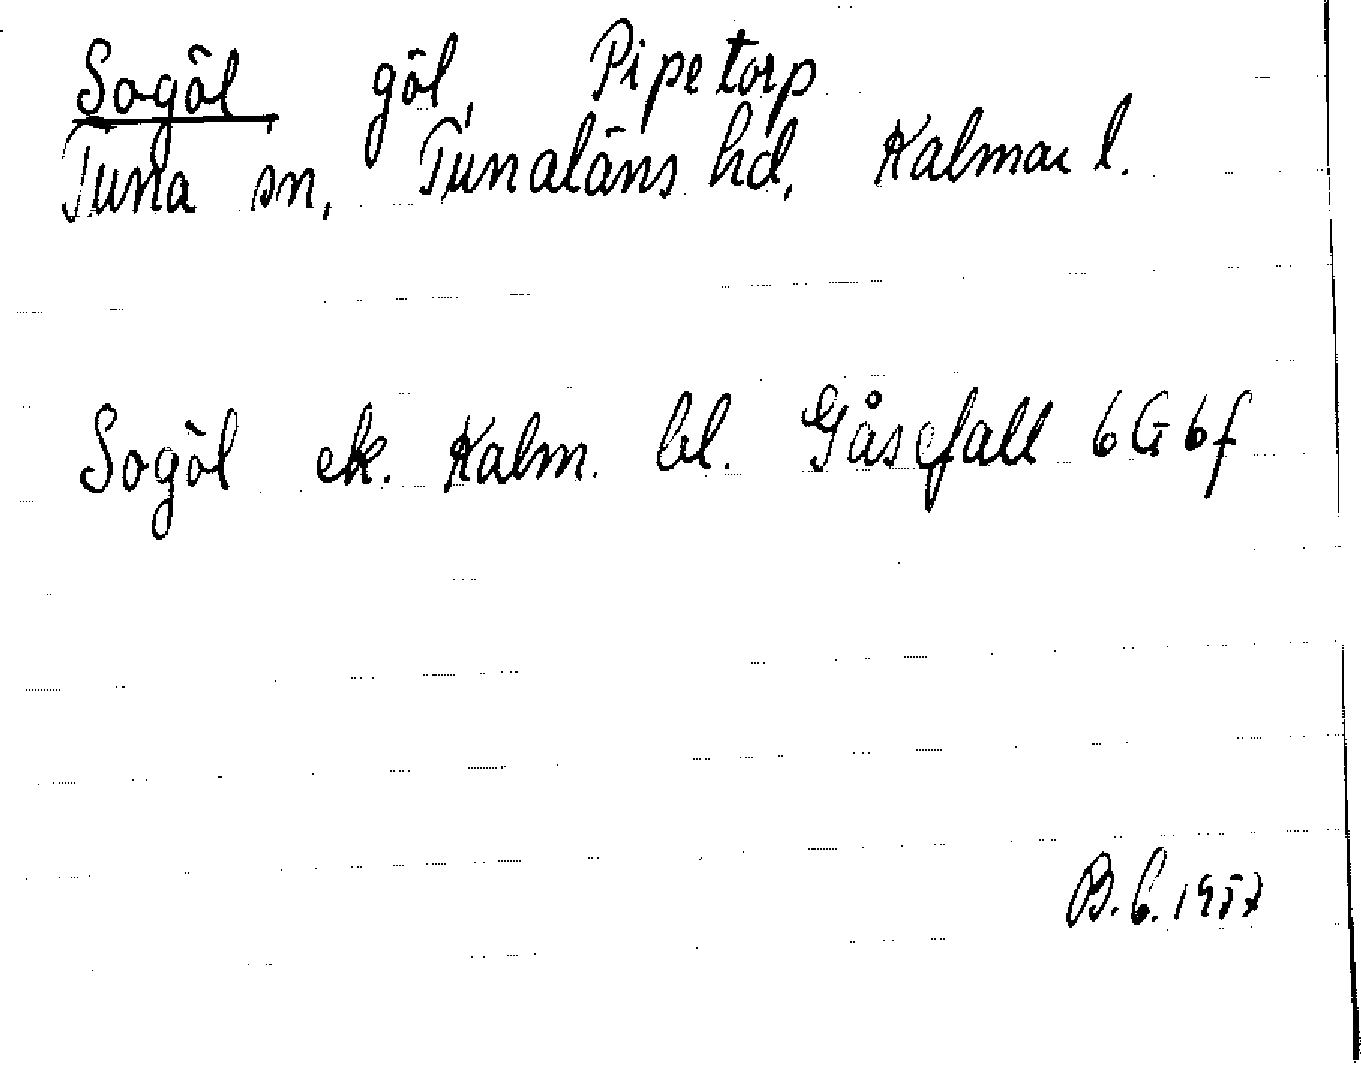 Sogöl göl, Pipetorp
Tuna sn, Tunaläns hd, Kalmar l.
Sogöl ek. Kalm. bl. Gåsefall 6G6f